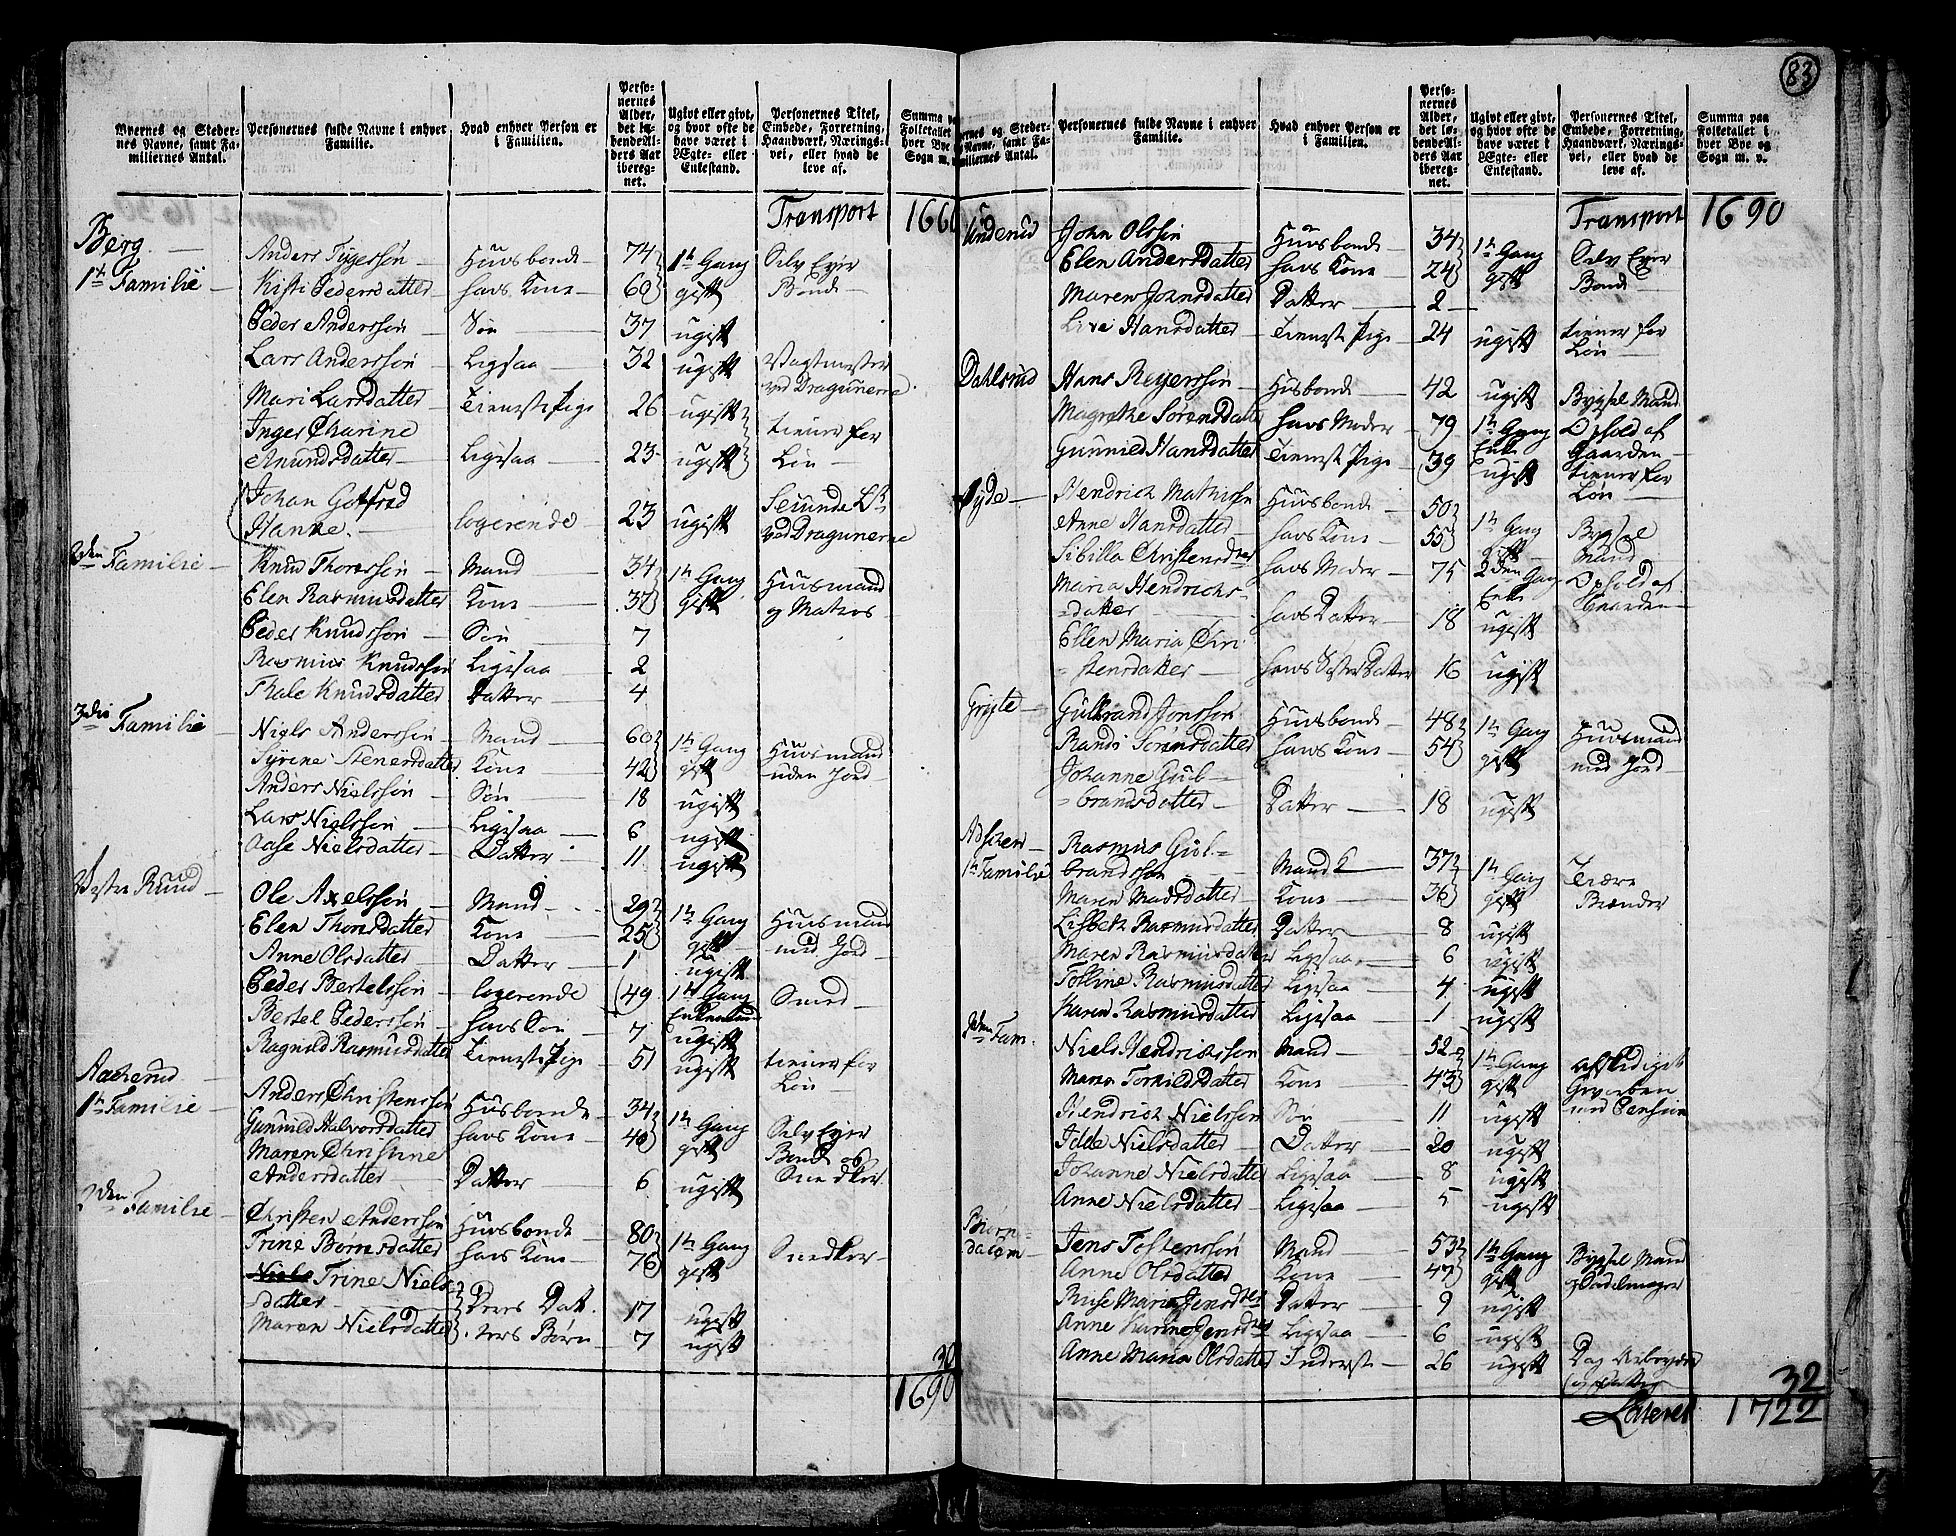 83
Byernes og Steder-
nes Navne, samt Fa-
miliernes Antal.
Personernes fulde Navne i enhver
Familie.
Hvad enhver Person er
i Familien.
Perso-
nernes
Alder,
det lø-
bende Al-
ders Aar
iberegnet.
Ugivt eller givt,
og hvor ofte de
have været i
Ægte- eller
Enkestand.
Personernes Titel,
Embede, Forretning,
Haandværk, Nærings-
vei, eller hvad de
leve af.
Summa paa
Folketallet i
hver Bye og
Sogn m. v.
Transport 1660
Berg
1te Familie
Anders Huusbonde 74 1te Gang Selv Eyer
Kisti Pedersdatter hans Kone 60 gift Bonde
Peder Anderssøn Søn 37 ugift
Lars Anderssøn Ligesaa 32 ugift Vagtmester
ved Dragunerne
Mari Larsdatter Tieneste Pige 26 ugift tiener for
Inger Charine
Amundsdatter Ligesaa 23 ugift Løn
Johan Gotfred
Hanke logerende 23 ugift Secunde Lt
ved Dragunerne
2den Familie Knud Thorssøn Mand 34 1te Gang Huusmand
Elen Rasmusdatter Kone 37 gift og Matros
Peder Knudssøn Søn 7
Rasmus Knudssøn Ligesaa 2
Thale Knudsdatter Datter 4
3die Familie Niels Anderssøn Mand 60 1te Gang Huusmand
Syrine Stenersdatter Kone 42 gift uden Jord
Anders Nielssøn Søn 18 ugift
Lars Nielssøn Ligesaa 6 ugift
Aase Nielsdatter Datter 11 ugift
Vester Ruud Ole Axelssøn Mand 29 1te Gang Huusmand
Elen Thorsdatter Kone 25 gift med Jord
Anne Olsdatter Datter 1 ugift
Peder Bertelssøn logerende 49 1te Gang Smed
Enkemand
Bertel Pederssøn hans Søn 7 ugift
Ragnild Rasmusdatter Tieneste Pige 51 ugift tiener for
Løn
Aacherud
1te Familie Anders Christenssøn Husbonde 34 1te Gang Selv Eyer
Gunnild Halvorsdatter hans Kone 40 gift Bonde og
Maren Christine Snedker
Andersdatter Datter 6 ugift
2den Familie Christen Anderssøn Huusbonde 80 1te Gang
Trine Børnsdatter hans Kone 76 gift Snedker
Niels Trine Niels
datter Deres Dat. 17 ugift
Maren Nielsdatter ters Børn 7 ugift
30
1690
Byernes og Steder-
nes Navne, samt Fa-
miliernes Antal.
Personernes fulde Navne i enhver
Familie.
Hvad enhver Person er
i Familien.
Perso-
nernes
Alder,
det lø-
bende Al-
ders Aar
iberegnet.
Ugivt eller givt,
og hvor ofte de
have været i
Ægte- eller
Enkestand.
Personernes Titel,
Embede, Forretning,
Haandværk, Nærings-
vei, eller hvad de
leve af.
Summa paa
Folketallet i
hver Bye og
Sogn m. v.
Transport 1690
John Olssøn Huusbonde 34 1te Gang Selv Eyer
Elen Andersdatter hans Kone 24 gift Bonde
Maren Johnsdatter Datter 2
Live Hansdatter Tieneste Pige 24 ugift tiener for
Løn
Dahlsrud Hans Reyerssøn Husbonde 42 ugift Bygsel Mand
Magrethe Sørensdatter hans Moder 79 1te Gang Ophold af
Enke Gaarden
Gunnild Hansdatter Tieneste Pige 39 ugift tiener for
Løn
Hendrich Mathissøn Huusbonde 50 1te Gang Bygsel
Anne Hansdatter hans Kone 55 gift Mand
Sibilla Christensdter hans Moder 75 2den Gang Ophold af
Enke Gaarden
Maria Hendrichs-
datter hans Datter 18 ugift
Ellen Maria Chri-
stensdatter hans Søster Datter 16 ugift
Gulbrand Jonssøn Huusbonde 48 1te Gang Huusmand
Randi Sørensdatter hans Kone 54 gift med Jord
Johanne Gul-
brandsdatter Datter 18 ugift
1te Familie Rasmus Gul-
brandssøn Mand 37 1te Gang Tiære
Maren Madsdatter Kone 36 gift Brænder
Lisbeth Rasmusdatter Datter 8 ugift
Maren Rasmusdatter Ligesaa 6 ugift
Rasmusdatter Ligesaa 4 ugift
Karen Rasmusdatter Ligesaa 1 ugift
2den Fam. Niels Hendrichssøn Mand 52 1te Gang afskediget
Maren Tornildsdatter Kone 43 gift Gevorben
med Pension
Hendrich Nielssøn Søn 11 ugift
Idde Nielsdatter Datter 20 ugift
Johanne Nielsdatter Ligesaa 8 ugift
Anne Nielsdatter Ligesaa 5 ugift
Biørn-
dalen Jens Tostenssøn Mand 53 1te Gang Bygsel Mand
Anne Olsdatter Kone 47 gift og Sadelmager
Maria Jensdter Datter 9 ugift
Anne Karine Jensdter Ligesaa 6 ugift
Anne Maria Olsdatter Inderste 26 ugift Dag
32
Lateret 1722